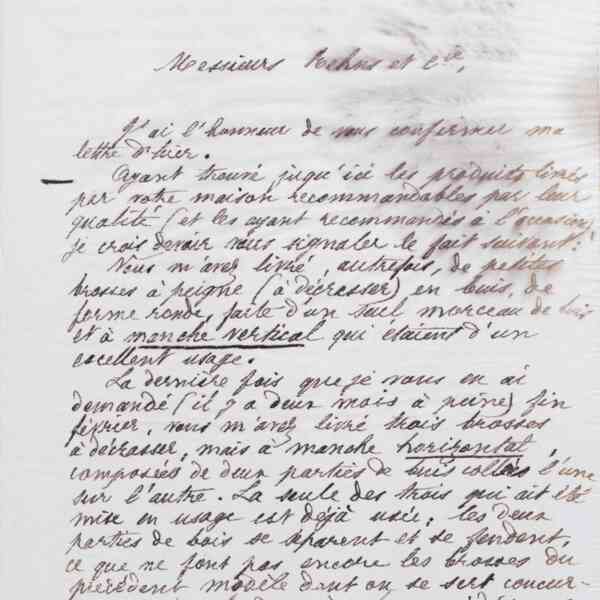 Messieurs Rehns et Cie,
J'ai l'honneur de vous confirmer ma
lettre d'hier.
Ayant trouvé jusqu'ici les produits livrés
par votre maison recommandables par leur
qualité (et les ayant recommandés à l'occasion)
je crois devoir vous signaler le fait suivant:
Vous m'avez livré, autrefois, de petites
brosses à peigne (à décrasser) en buis, de
forme ronde, faite d'un seul morceau de buis
et à manche vertical qui étaient d'un
excellent usage.
La dernière fois que je vous en ai
demandé (il y a deux mois à peine) fin
février, vous m'avez livré trois brosses
à décrasser, mais à manche horizontal,
composées de deux parties de buis collées l'une
sur l'autre. La seule des trois qui ait été
mise en usage est déjà usée; les deux
parties de bois se séparent et se fendent,
ce que ne font pas encore les brosses du
précédent modèle dont on se sert concur-